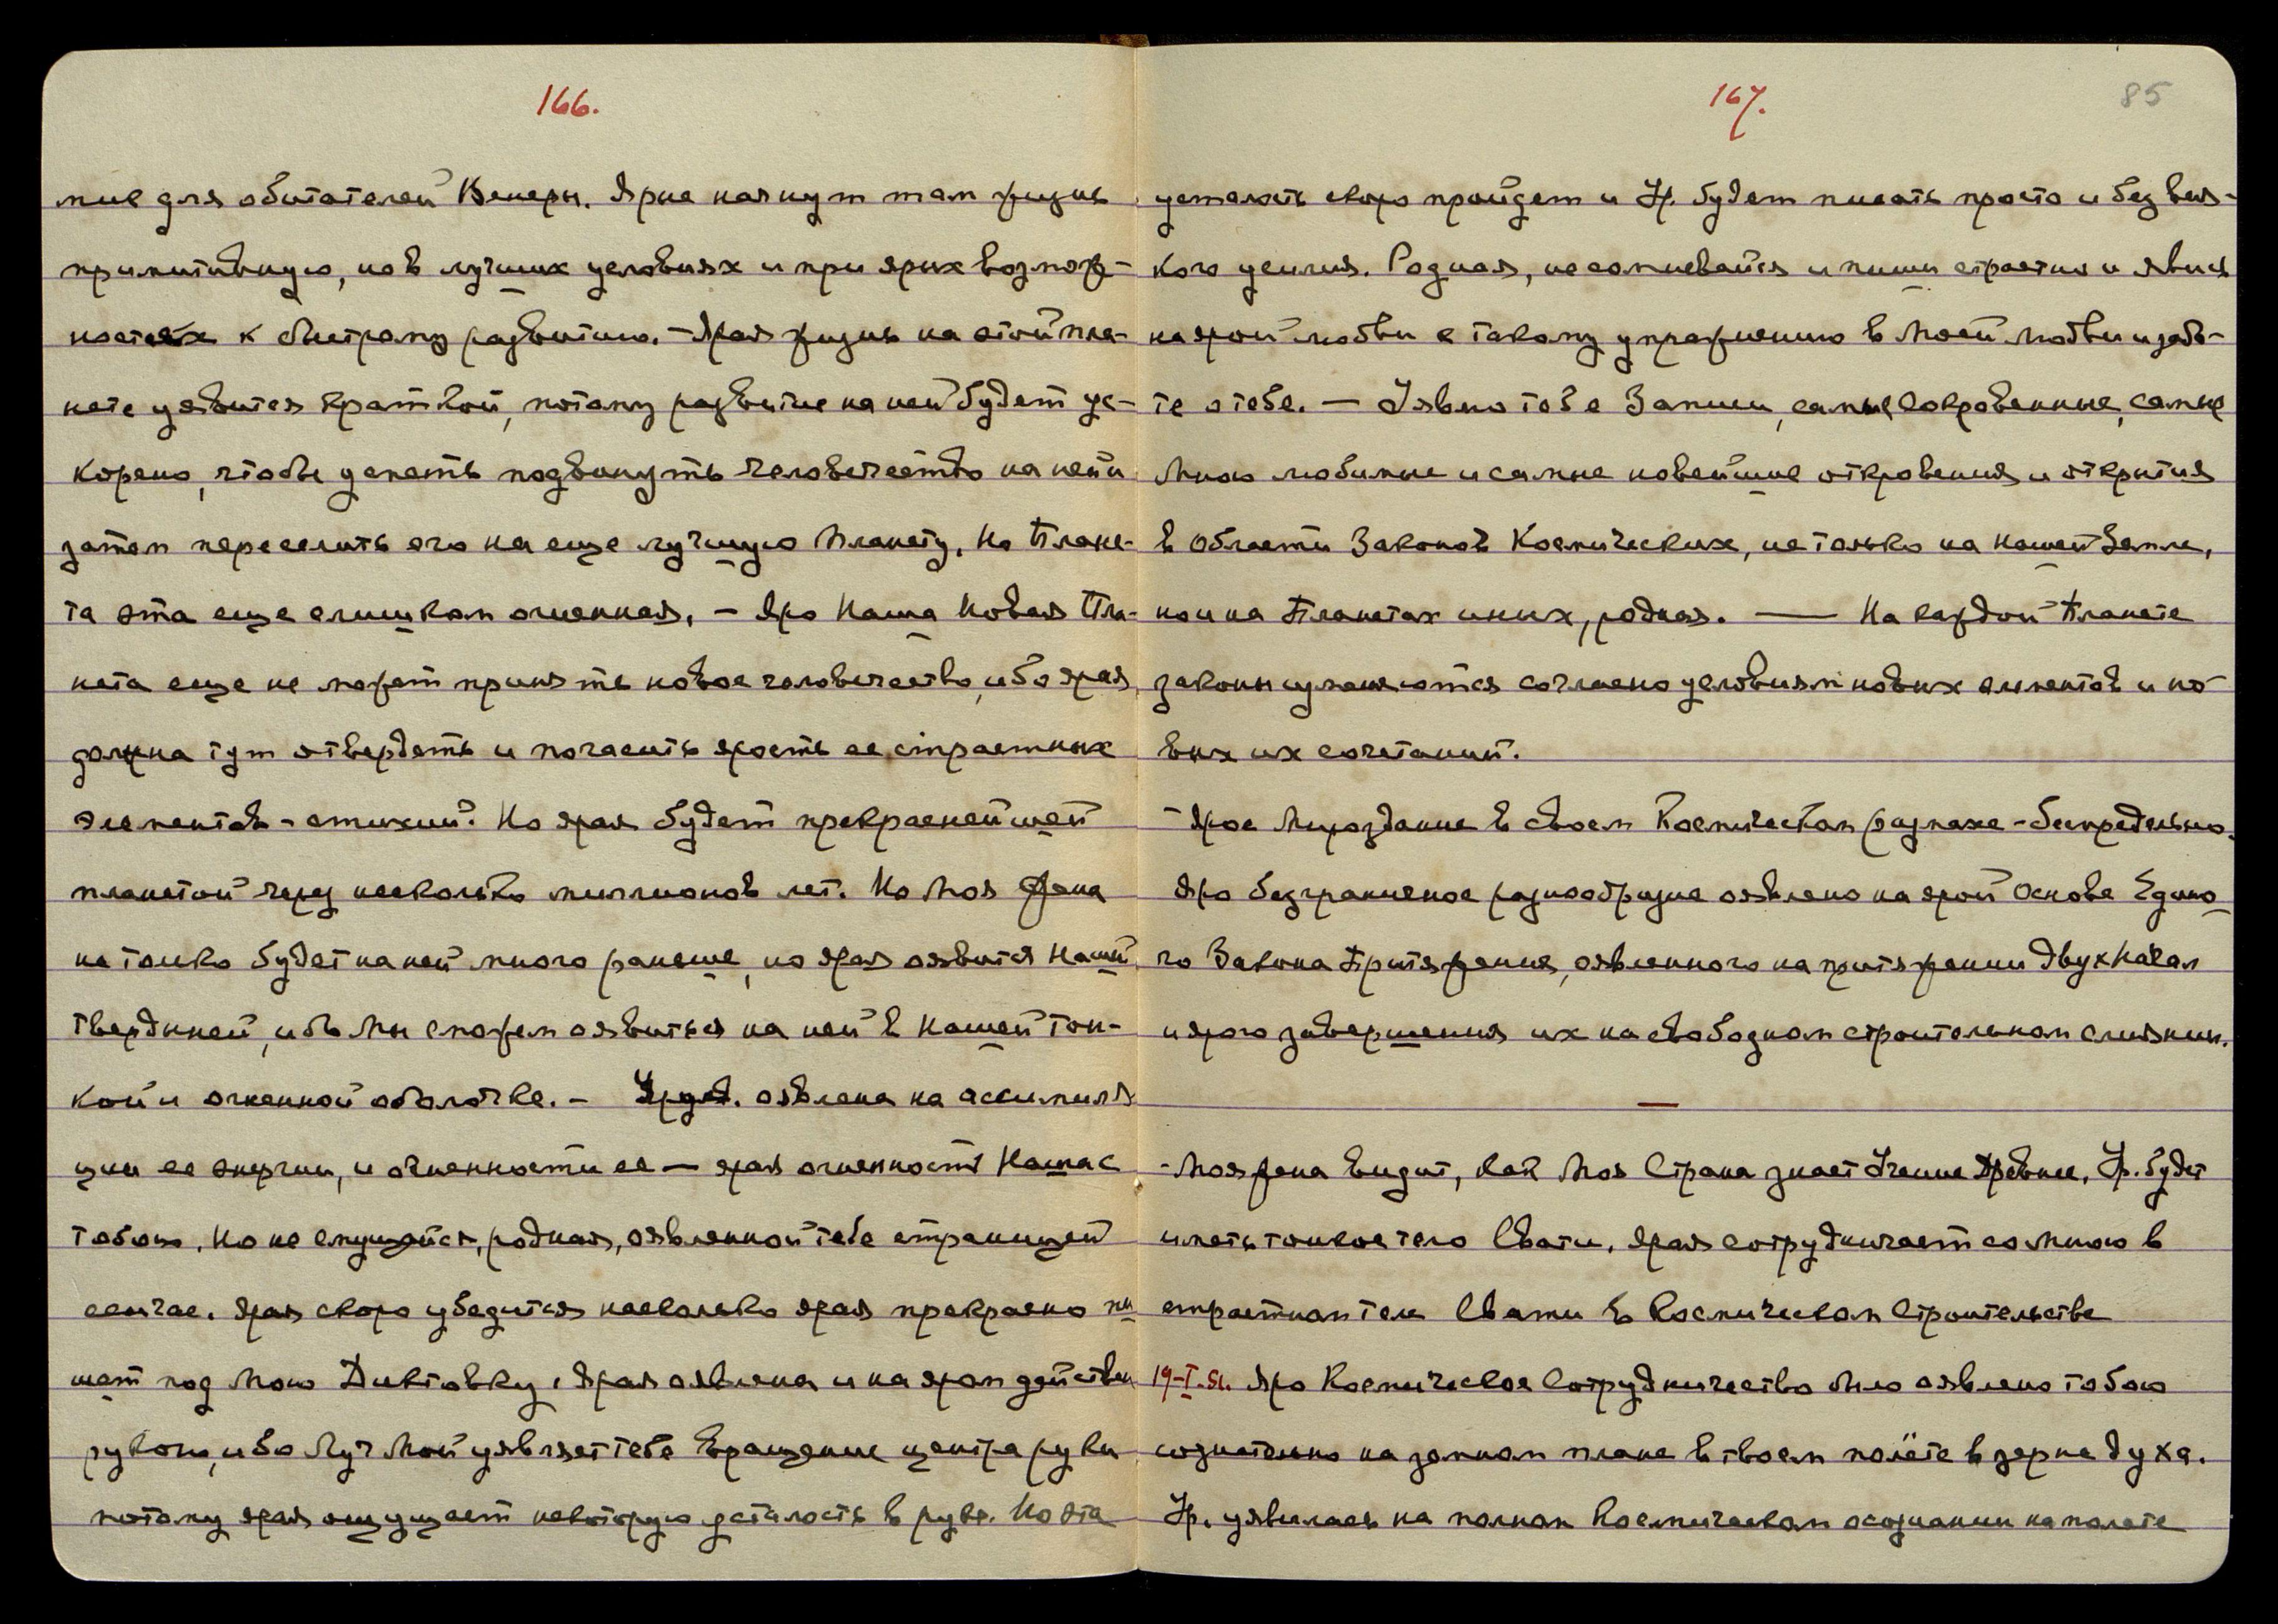 166.
ние для обитателей Венеры. Ярые начнут там жизнь
примитивную, но в лучших условиях и при ярых возмож-
ностях к быстрому развитию. – Ярая жизнь на этой пла-
нете уявится краткой, потому развитие на ней будет ус-
корено, чтобы успеть подвинуть человечество на ней и
затем переселить его на еще лучшую Планету. Но Плане-
та эта еще слишком огненная. – Яро Наша Новая Пла-
нета еще не может принять новое человечество, ибо ярая
должна тут отвердеть и погасить ярость ее страстных
элементов – стихий. Но ярая будет прекраснейшей
планетой через несколько миллионов лет. Но Моя Жена
не только будет на ней много раньше, но ярая оявится Нашей
твердыней, ибо Мы сможем оявиться на ней в Нашей тон-
кой и огненной оболочке. – оявлена на ассимиля
ции ее энергии, и огненности ее — ярая огненность Наша с
тобою. Но не смущайся, родная, оявленной тебе страницей
сейчас. Ярая скоро убедится насколько ярая прекрасно пи
шет под Мою Диктовку. Ярая оявлена и на яром действии
рукою, ибо Луч Мой уявляет тебе вращение центра руки
потому ярая ощущает некоторую усталость в руке. Но эта
167.
85
усталость скоро пройдет и Ур. будет писать просто и без вся-
кого усилия. Родная, не сомневайся и пиши страстно и явись
на ярой любви к такому упражнению в Моей Любви и забо-
те о тебе. — Уявлю тебе Записи, самые Сокровенные, самые
Мною любимые и самые новейшие откровения и открытия
в Области Законов Космических, не только на Нашей Земле,
но и на Планетах иных, родная. — На каждой Планете
законы усложняются согласно условиям новых элементов и но-
вых их сочетаний.
– Ярое Мироздание в своем Космическом размахе – беспредельно.
Яро безграничное разнообразие оявлено на ярой Основе Едино
го Закона Притяжения, оявленного на притяжении Двух Начал
и ярого завершения их на свободном строительном слиянии.
—
– Моя жена видит, как Моя Страна знает Учение Древнее. Ур. будет
иметь тонкое тело Свати. Ярая сотрудничает со Мною в
страстном теле Свати в Космическом Строительстве
19–I.51. Яро Космическое Сотрудничество было оявлено тобою
сознательно на земном плане в твоем полёте в зерне духа.
Ур. уявилась на полном Космическом осознании на полете